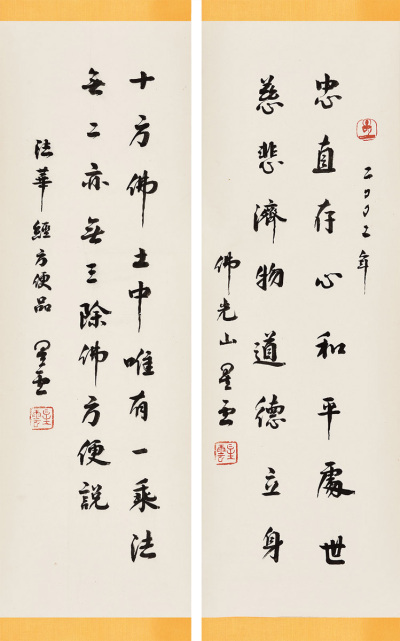 二００二年
忠直存心和平處世
慈悲濟物道德立身
佛光山星雲
十方佛土中唯有一乘法
無二亦無三除佛方便說
法華經方便品 星雲
星雲
星雲